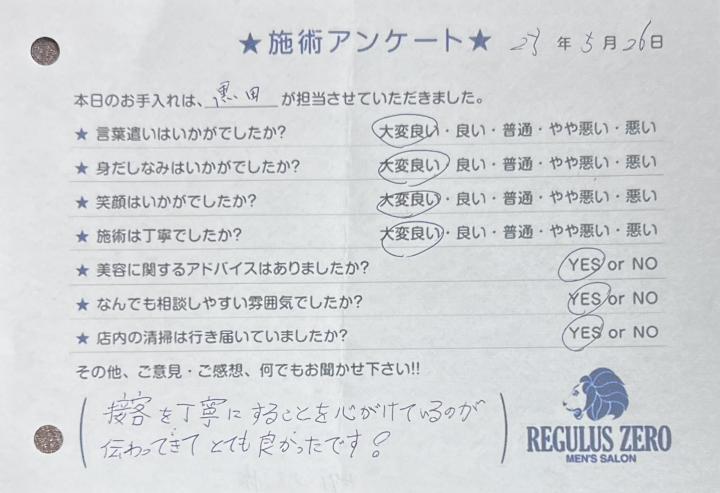 ★施術アンケート★ 23年5月26日
本日のお手入れは、黒田が担当させていただきました。
★ 言葉遣いはいかがでしたか? 大変良い・良い・普通・やや悪い・悪い
★ 身だしなみはいかがでしたか? 大変良い・良い・普通・やや悪い・悪い
★ 笑顔はいかがでしたか? 大変良い・良い・普通・やや悪い・悪い
★ 施術は丁寧でしたか? 大変良い・良い・普通・やや悪い・悪い
★ 美容に関するアドバイスはありましたか? YES or NO
★ なんでも相談しやすい雰囲気でしたか? YES or NO
★ 店内の清掃は行き届いていましたか? YES or NO
その他、ご意見・ご感想、何でもお聞かせ下さい!!
接客を丁寧にすることを心がけているのが
伝わってきてとても良かったです!
REGULUS ZERO
MEN'S SALON